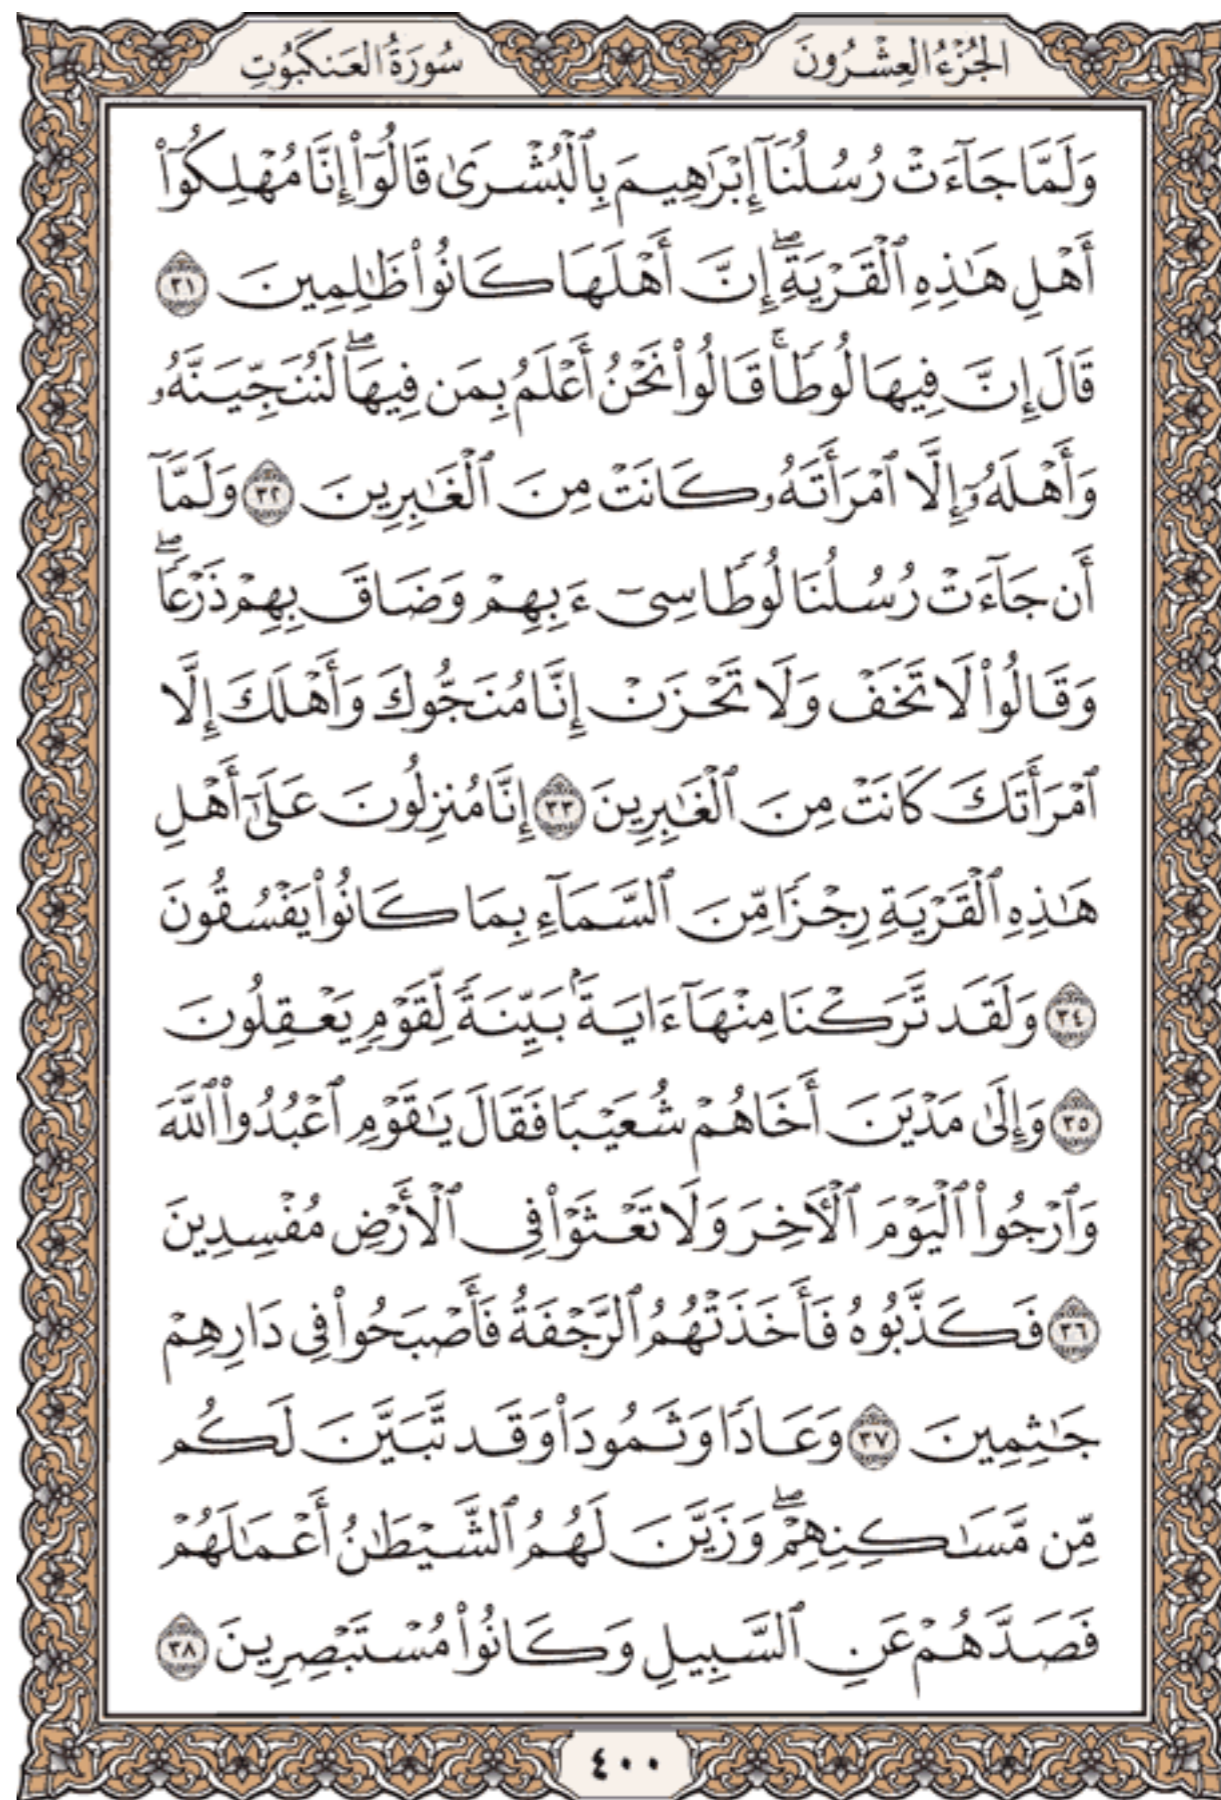 الجُزْءُ العِشْرُونَ
سُورَةُ العَنكَبُوتِ
وَلَمَّا جَآءَتْ رُسُلُنَآ إِبْرَٰهِيمَ بِٱلْبُشْرَىٰ قَالُوٓا۟ إِنَّا مُهْلِكُوٓا۟
أَهْلِ هَٰذِهِ ٱلْقَرْيَةِ ۖ إِنَّ أَهْلَهَا كَانُوا۟ ظَٰلِمِينَ ٣١
قَالَ إِنَّ فِيهَا لُوطًا ۚ قَالُوا۟ نَحْنُ أَعْلَمُ بِمَن فِيهَا ۖ لَنُنَجِّيَنَّهُۥ
وَأَهْلَهُۥٓ إِلَّا ٱمْرَأَتَهُۥ كَانَتْ مِنَ ٱلْغَٰبِرِينَ ٣٢ وَلَمَّآ
أَن جَآءَتْ رُسُلُنَا لُوطًا سِىٓءَ بِهِمْ وَضَاقَ بِهِمْ ذَرْعًا ۖ
وَقَالُوا۟ لَا تَخَفْ وَلَا تَحْزَنْ إِنَّا مُنَجُّوكَ وَأَهْلَكَ إِلَّا
ٱمْرَأَتَكَ كَانَتْ مِنَ ٱلْغَٰبِرِينَ ٣٣ إِنَّا مُنزِلُونَ عَلَىٰٓ أَهْلِ
هَٰذِهِ ٱلْقَرْيَةِ رِجْزًا مِّنَ ٱلسَّمَآءِ بِمَا كَانُوا۟ يَفْسُقُونَ
٣٤ وَلَقَد تَّرَكْنَا مِنْهَآ ءَايَةًۢ بَيِّنَةً لِّقَوْمٍ يَعْقِلُونَ
٣٥ وَإِلَىٰ مَدْيَنَ أَخَاهُمْ شُعَيْبًا فَقَالَ يَٰقَوْمِ ٱعْبُدُوا۟ ٱللَّهَ
وَٱرْجُوا۟ ٱلْيَوْمَ ٱلْءَاخِرَ وَلَا تَعْثَوْا۟ فِى ٱلْأَرْضِ مُفْسِدِينَ
٣٦ فَكَذَّبُوهُ فَأَخَذَتْهُمُ ٱلرَّجْفَةُ فَأَصْبَحُوا۟ فِى دَارِهِمْ
جَٰثِمِينَ ٣٧ وَعَادًا وَثَمُودَا۟ وَقَد تَّبَيَّنَ لَكُم
مِّن مَّسَٰكِنِهِمْ ۖ وَزَيَّنَ لَهُمُ ٱلشَّيْطَٰنُ أَعْمَٰلَهُمْ
فَصَدَّهُمْ عَنِ ٱلسَّبِيلِ وَكَانُوا۟ مُسْتَبْصِرِينَ ٣٨
٤٠٠